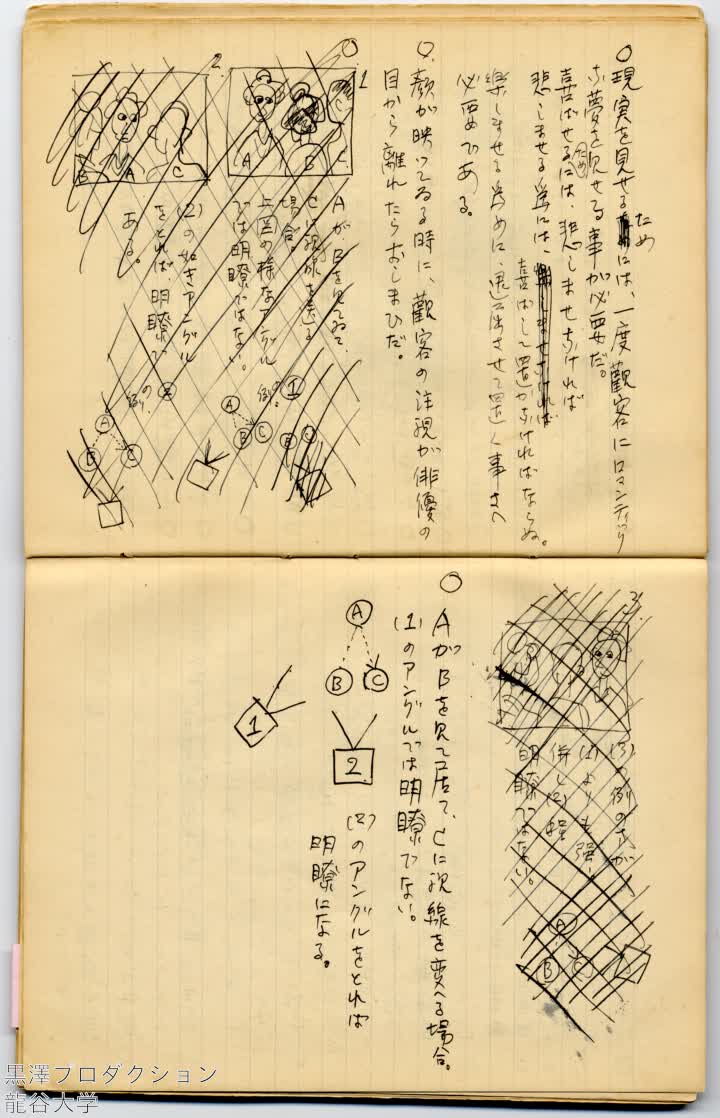 〇現実を見せるためには、一度観客にロマンティック
な夢を見せる事が必要だ。
喜ばせるためには、悲しませなければ
悲しませる為には、喜ばして置かなければならぬ。
楽しませる為めに、退屈させて置く事さへ
必要である。
〇顔が映ってゐる時に、観客の注視が俳優の
目から離れたらおしまひだ。
〇
1
A
B
C
2.
B
A
C
AがBを見てゐて、
Cに視線を
場合。
上図の様なアングル
では明瞭ではない。
(2)の如きアングル
をとれば、明瞭で
ある。
1
の例。
A
B
C
B
C
2
の例。
A
B
C
3
(3)の例の方が
(1)よりも強い
併し(2)程
明瞭ではない。
A
B
C
〇AがBを見て居て、Cに視線を変へる場合。
(1)のアングルでは明瞭でない。
A
B
C
1
2
(2)のアングルをとれば
明瞭になる。
黒澤プロダクション
龍谷大学